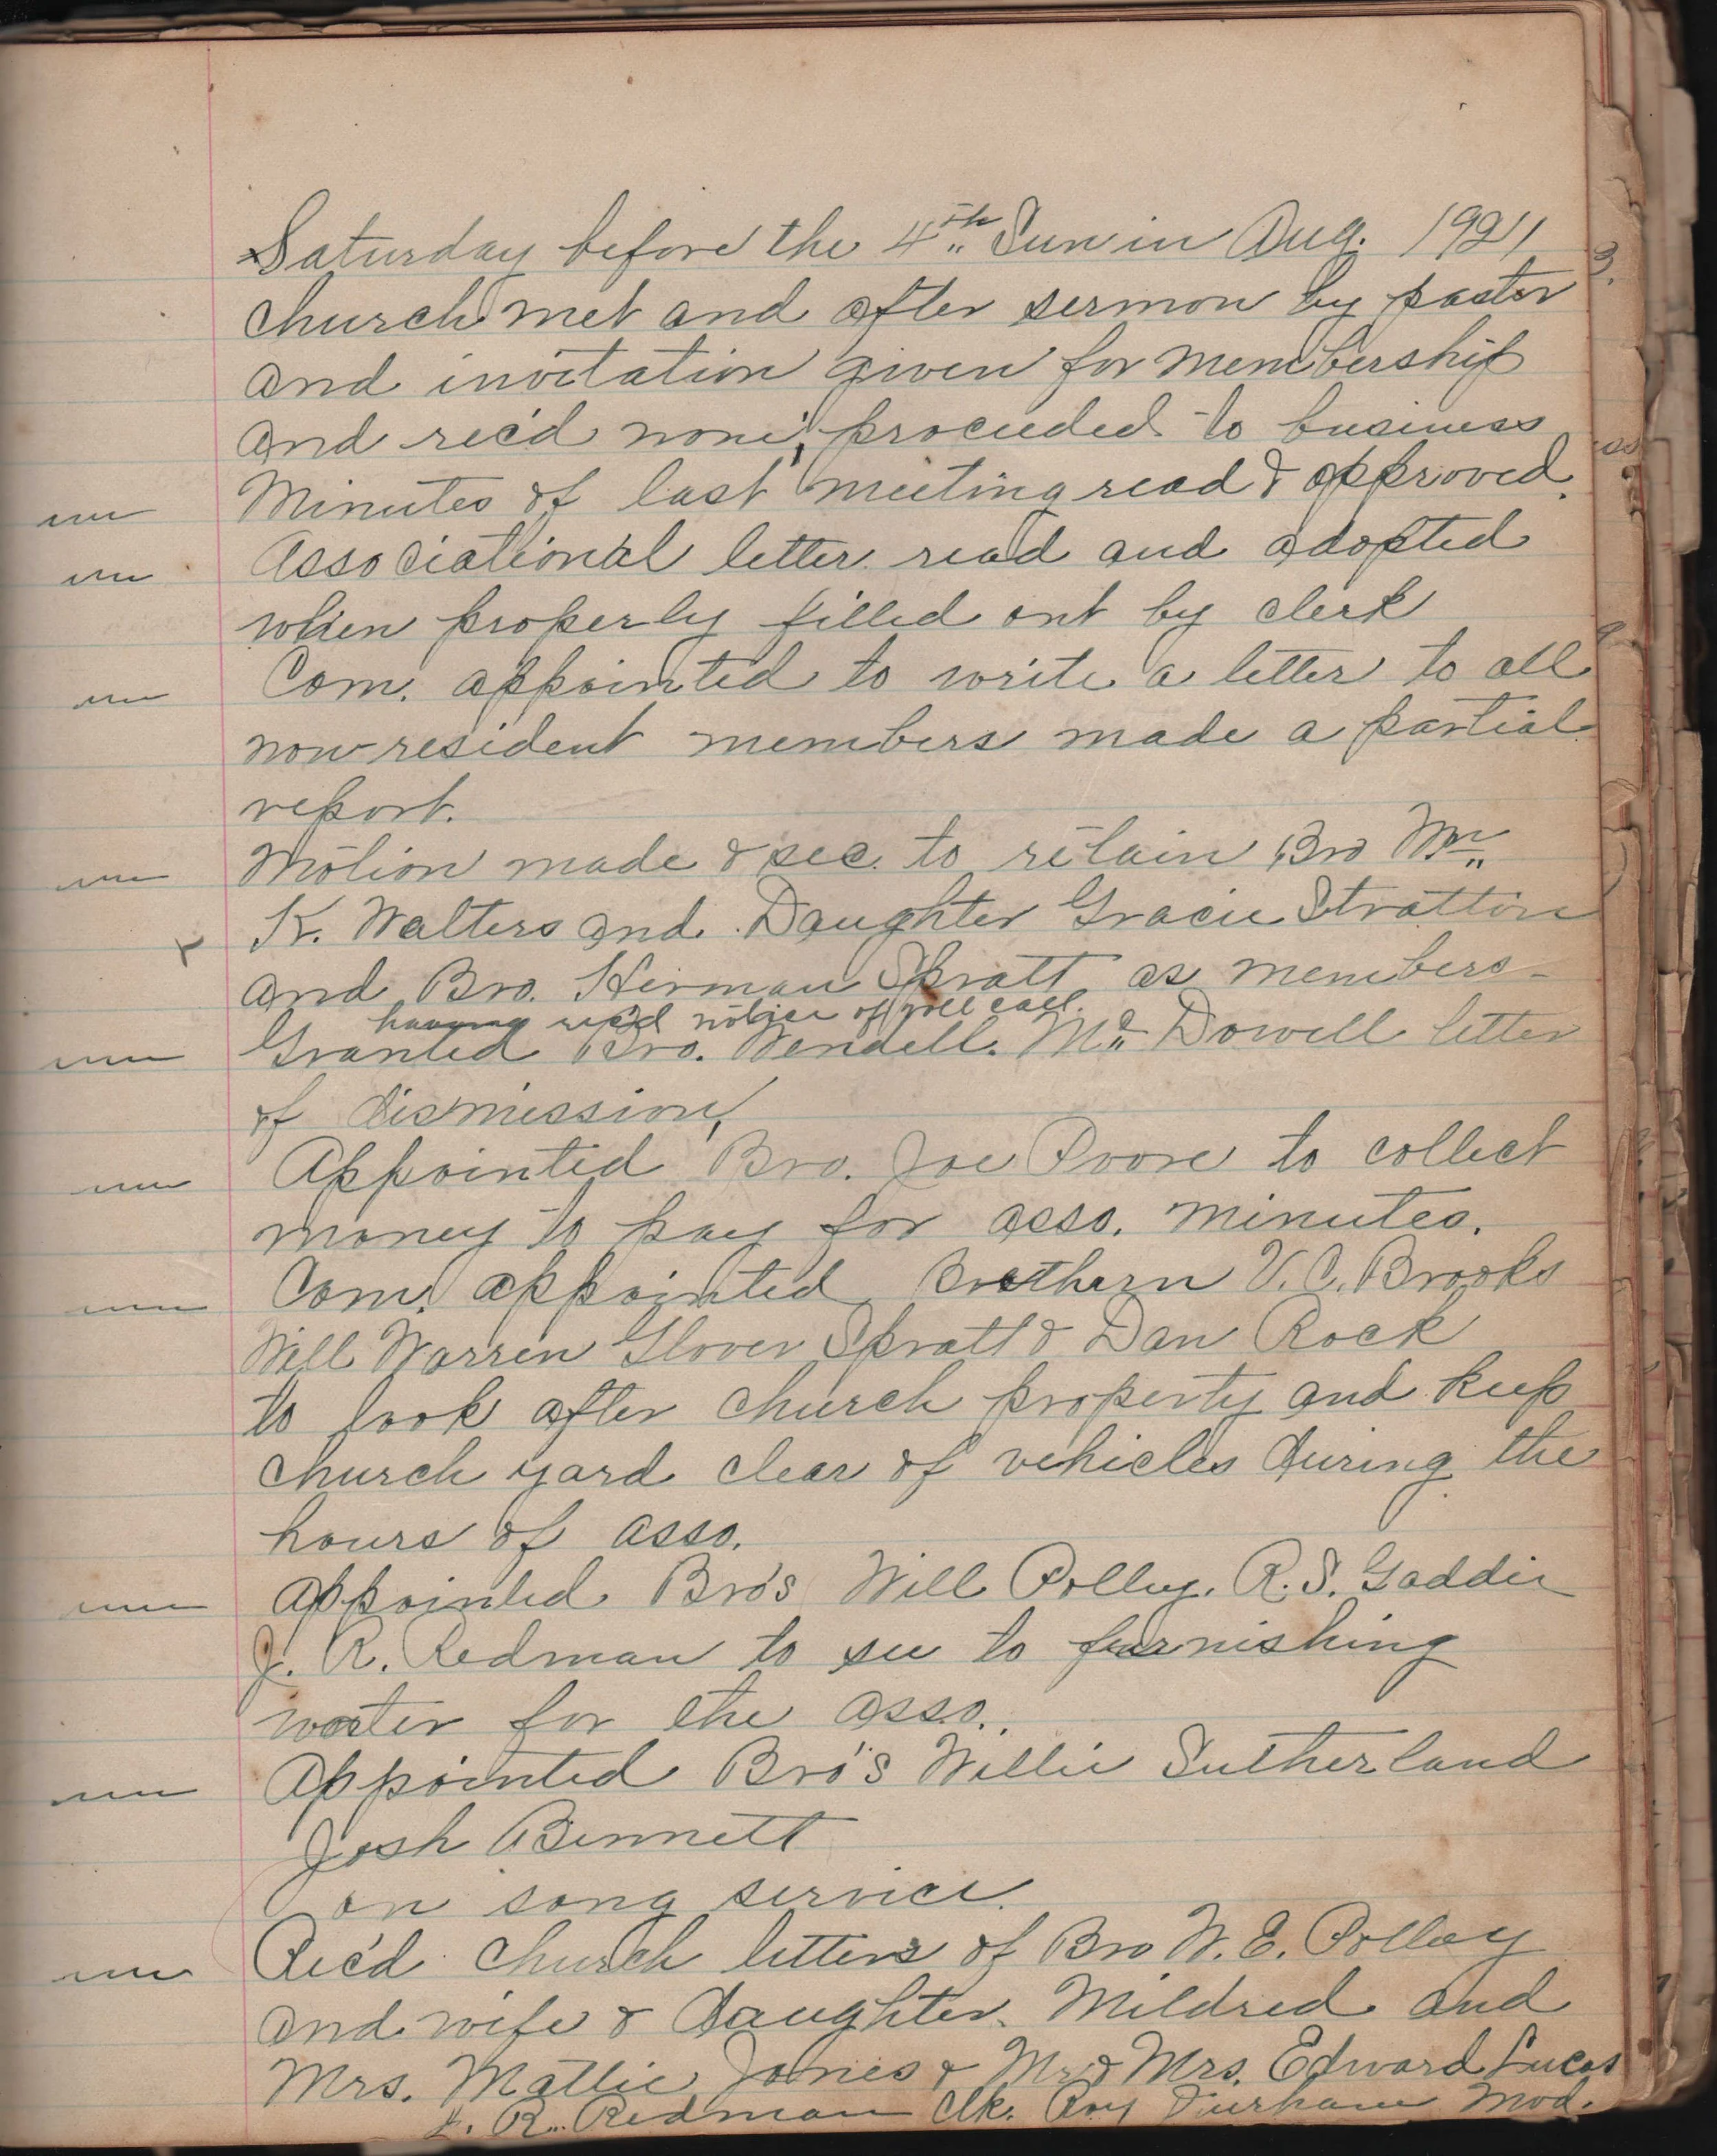 Saturday before the 4th Sun in Aug. 1921
church met and after sermon by pastor
and invitation given for membership
and rec'd none, proceeded to business
Minutes of last meeting read & approved.
Associational letter read and adopted
when properly filled out by clerk
Com. appointed to write a letter to all
non-resident members made a partial
report.
Motion made & sec. to retain Bro Wm
K. Walters and Daughter Gracie Stratton
and Bro. Herman Spratt as members-
having rec'd notice of roll call.
Granted Bro. Wendell. Mc Dowell letter
of dismission,
Appointed Bro. Joe Poore to collect
money to pay for asso. minutes.
Com. appointed Brethern V.C. Brooks
Will Warren Glover Spratt & Dan Rock
to look after church property and keep
church yard clear of vehicles during the
hours of asso.
appointed Bro's Will Polley. R.S. Gaddie
J. R. Redman to see to furnishing
water for the asso.
Appointed Bro's Willie Sutherland
Josh Bennett
on song service.
Rec'd church letters of Bro W.E. Polley
and wife & daughter. Mildred and
Mrs. Mattie Jones & Mr & Mrs. Edward Lucas
R. Redman Clk. Roy Durham Mod.